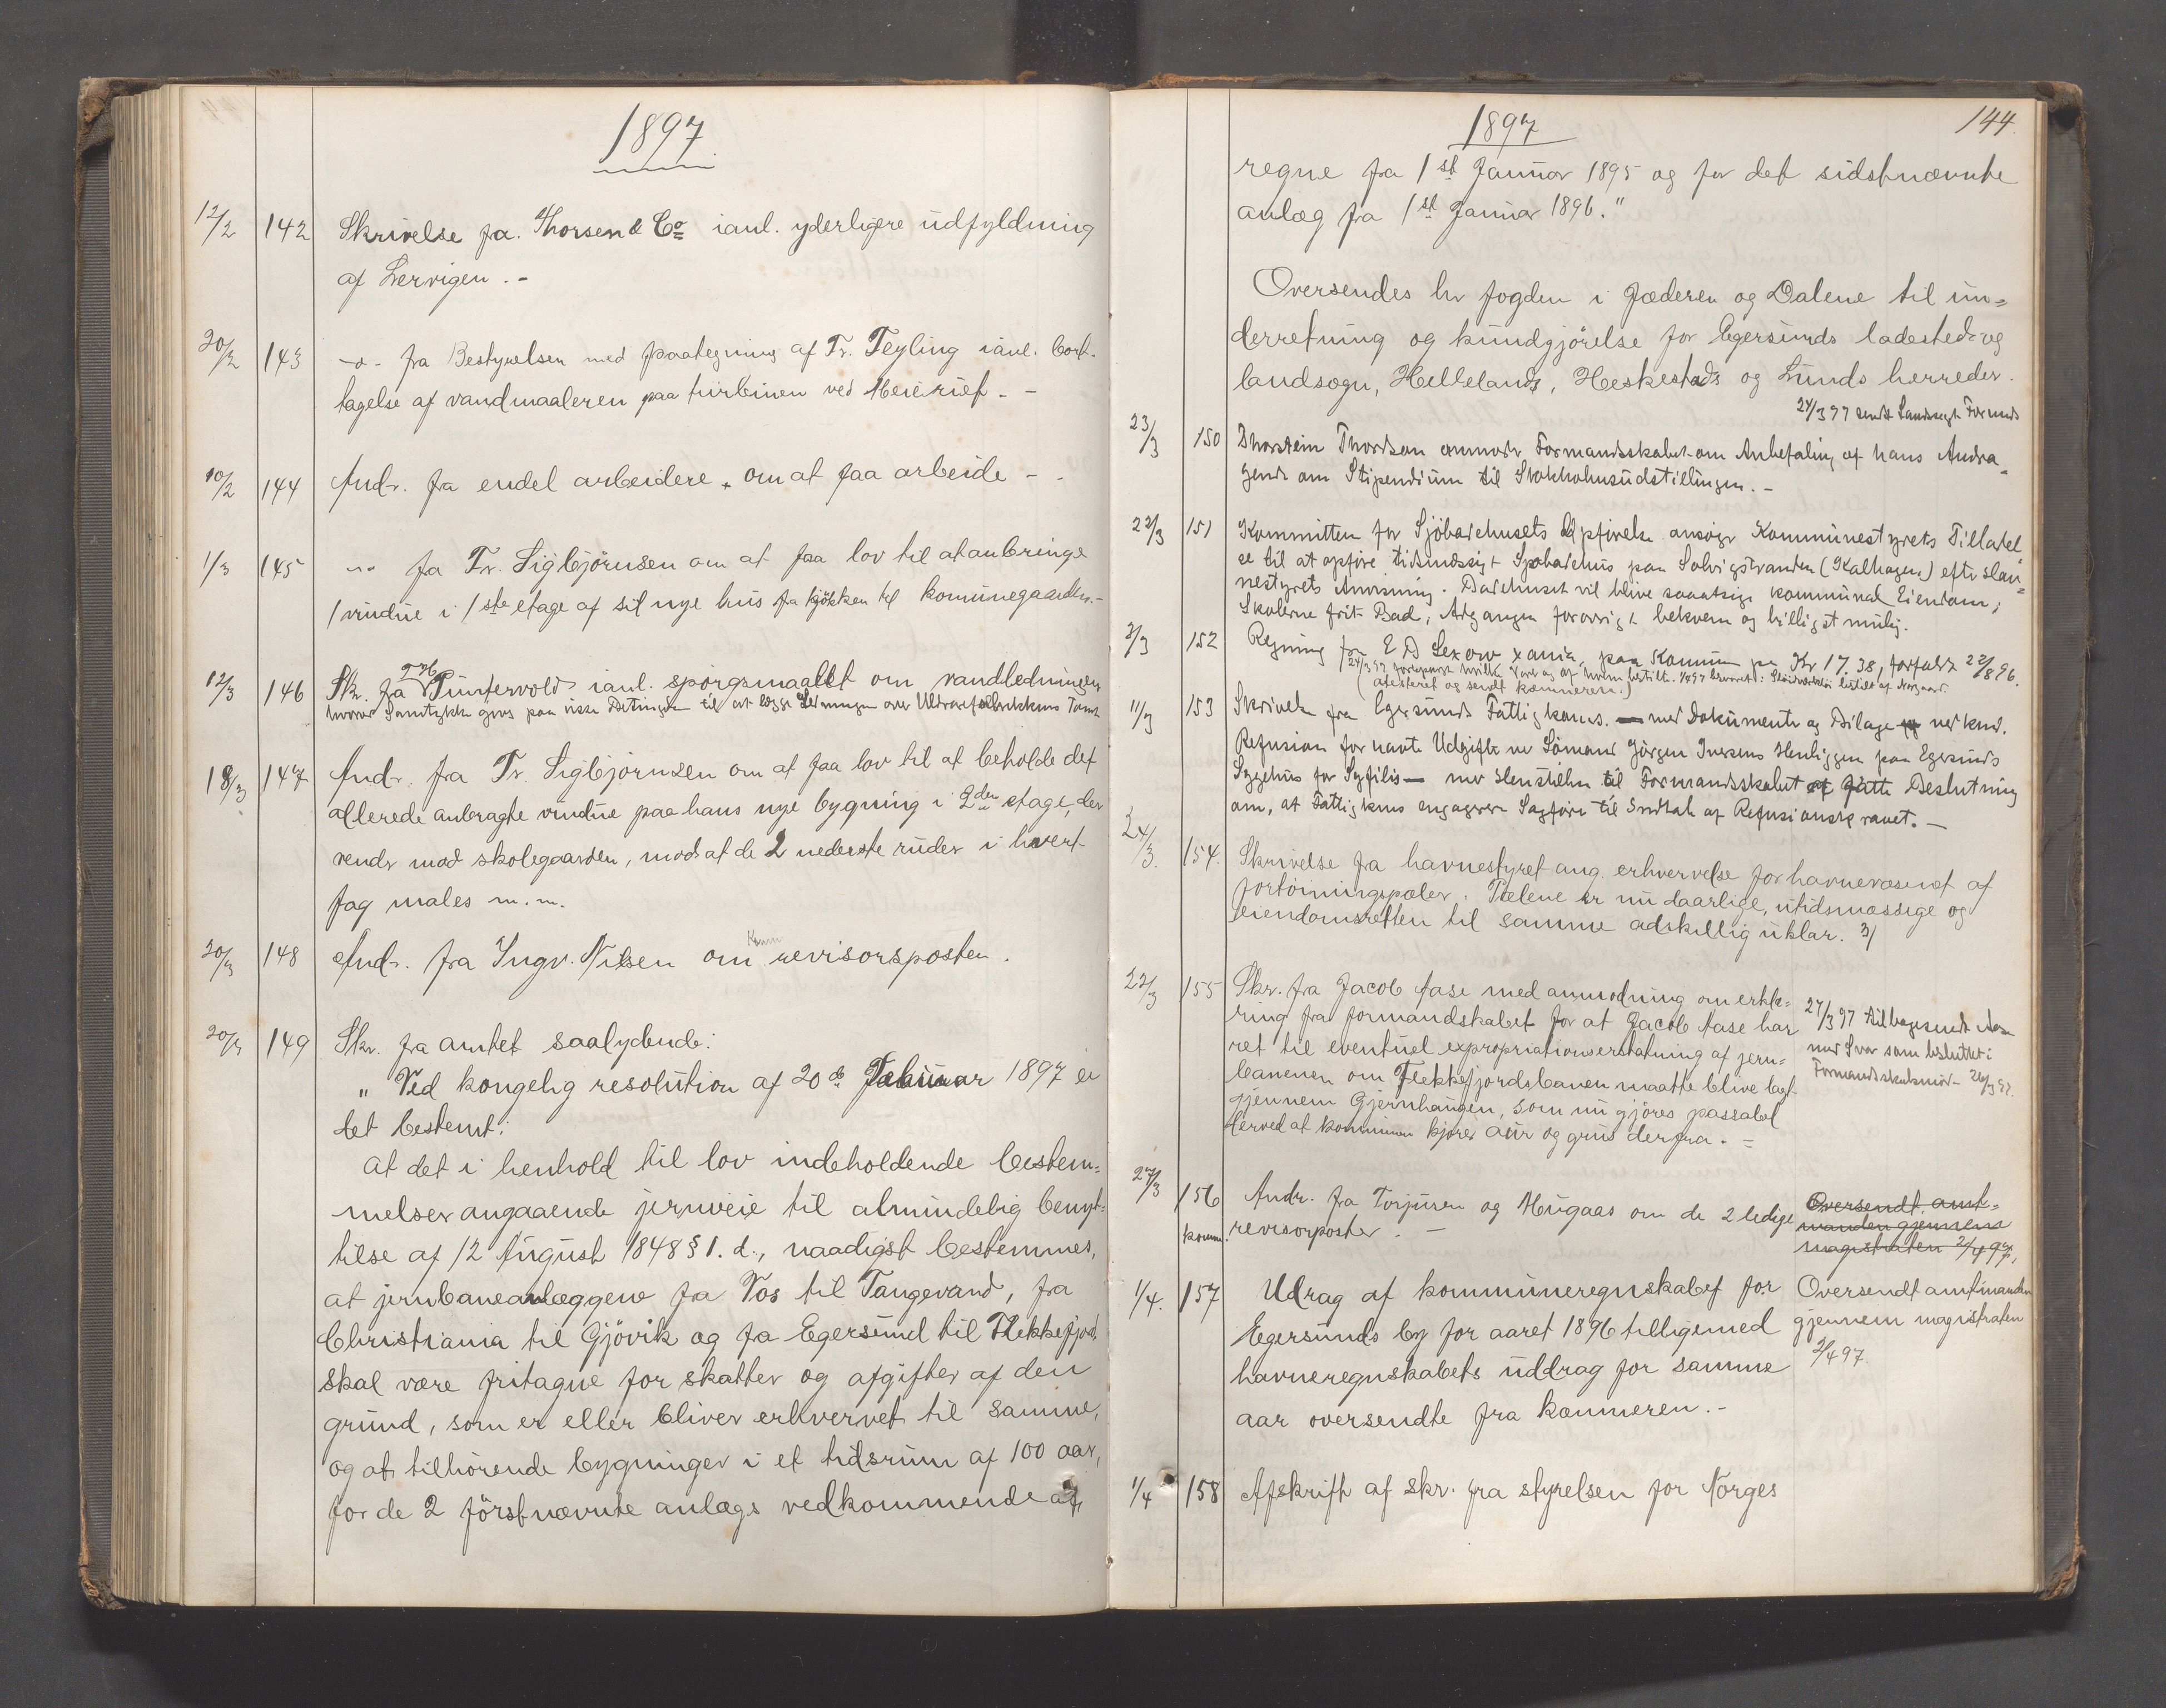 1897
12/2 142 Skrivelse fra Thorsen & Co ianl. yderligere udfyldning
af Lervigen. -
20/2 143 -o- fra Bestyrelsen med paategning af Fr. Feyling ianl. bort-
tagelse af vandmaaleren paa turbinen ved Meieriet. -
10/2 144 Andr. fra endel arbeidere om at faa arbeide -
1/3 145 -"- fra Fr. Sigbjörnsen om at faa lov til at anbringe
1 vindue i 1ste etage af sit nye hus fra kjökken til komunegaarden.-
12/3 146 Skr. fra Puntervold ianl. spørgsmaalet om vandledningen
hvorved Samtykke gives paa visse Betingelser til at lægge Ledningen over Uldvarefabrikkens Tomt
18/3 147 Andr. fra Fr. Sigbjörnsen om at faa lov til at beholde det
allerede anbragte vindue paa hans nye bygning i 2den etage, der
vender mod skolegaarden, mod at de 2 nederste ruder i hvert
fag males m.m.
20/3 148 Andr. fra Ingv. Nilsen om Kom revisorsposten.
20/3 149 Skr. fra amtet saalydende:
"Ved kongelig resolution af 20de Februar 1897 er
det bestemt:
at det i henhold til lov indeholdende bestem=
melser angaaende jernveie til almindelig benyt=
telse af 12 August 1848 § 1. d., naadigst bestemmes,
at jernbaneanlæggene fra Vos til Taugevand, fra
Christiania til Gjövik og fra Egersund til Flekkefjord,
skal være fritagne for skatter og afgifter af den
grund, som er eller bliver erhvervet til samme,
og af tilhörende bygninger i et tidsrum af 100 aar,
for de 2 förstnævnte anlægs vedkommende at
1897
144.
regne fra 1st Januar 1895 og for det sidstnævnte
anlæg fra 1st Januar 1896."
Oversendes hr fogden i Jæderen og Dalene til un=
derretning og kundgjörelse for Egersunds ladested- og
landsogn, Hellelands, Heskestads og Lunds herreder.
24/3 97 sendt Landsogts Formand
23/3 150 Thorstein Thordsen anmoder Formandsskabet om Anbefaling af hans Andra=
gende om Stipendium til Stokholmsudstillingen. -
22/3 151 Kommitteen for Sjöbadehusets Opförelse ansöger Kommunestyrets Tilladel
se til at opföre tidsmæssigt Sjøbadehus paa Solvigstranden (Kalhagen) efter Hav=
nestyrets Anvisning. Badehuset vil blive kommunal Eiendom;
Skolerne frit Bad, Adgangen forøvrigt bekvem og billigst mulig.
2/3 152 Regning fra E D Lexow xania, paa Kommunen pr Kr 17.38, forfaldt 22/8 96.
(attesteret og sendt kæmneren.)
11/3 153 Skrivelse fra Egersunds Fattigkoms. med Dokumenter og Bilage vedkmd.
Refusion for havte Udgifter ved Sömand Jörgen Iversens Henliggen paa Egersunds
Sygehus for Syfilis - med Henstillen til Formandsskabet at fatte Beslutning
om, at Fattigkoms engagerer Sagförer til Indtale af Refusionskravet. -
24/3. 154. Skrivelse fra havnestyret ang. erhvervelse for havnevæsenet af
fortöiningspæler. Pælene er nu daarlige, utidsmæssige og
eiendomsretten til samme adskillig uklar. 3/
22/3 155 Skr. fra Jacob Aase med anmodning om erklæ=
ring fra formandskabet for at Jacob Aase har
ret til eventuel expropriationserstatning af jern=
banenen om Flekkefjordsbanen maatte blive lagt
gjennem Gjernhaugen, som nu gjöres passabel
derved at kommunen kjører aur og grus derfra. =
27/3 97 tilbagesendt Aase
med Svar som besluttet i
Formandsskabsmöde 26/3 97.
27/3 156 Andr. fra Torjusen og Haugaas om de 2 ledige
komm. revisorposter. -
Oversendt amt=
manden gjennem
magistraten 2/4 97,
1/4. 157 Udrag af kommuneregnskabet for
Egersunds by for aaret 1896 tilligemed
havneregnskabets uddrag for samme
aar oversendte fra kæmneren. -
Oversendt amtmanden
gjennem magistraten
2/4 97.
1/4 158 Afskrift af skr. fra styrelsen for Norges